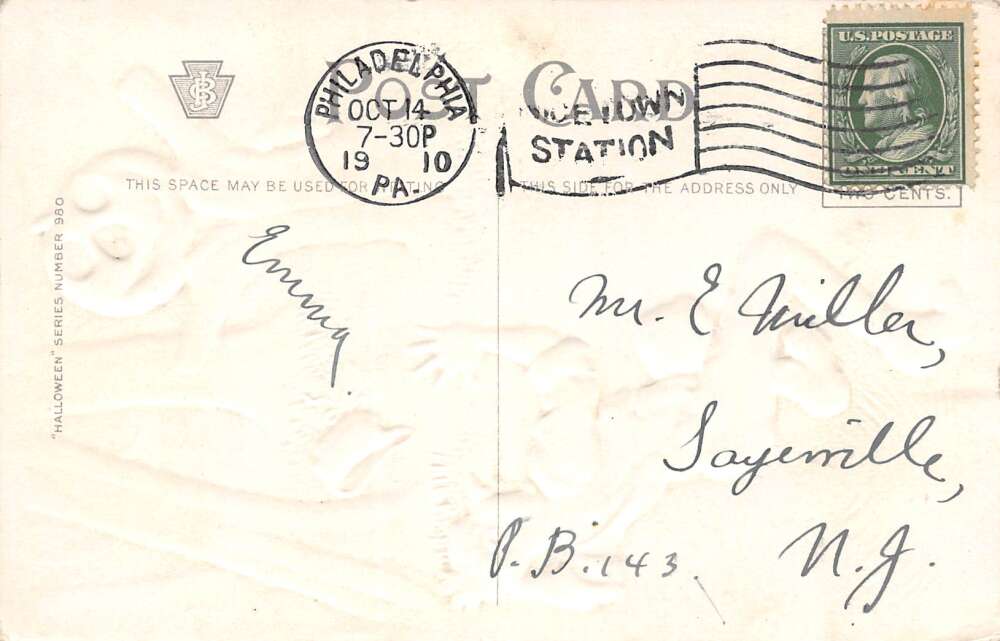 POST CARD
PHILADELPHIA
OCT 14
7-30P
19 10
PA.
STATION
U.S. POSTAGE
ONE CENT
TWO CENTS.
THIS SPACE MAY BE USED FOR WRITING
THIS SIDE FOR THE ADDRESS ONLY
"HALLOWEEN" SERIES NUMBER 980
Emma
Mr. E Miller,
Sayerville,
P.B. 143.
N.J.